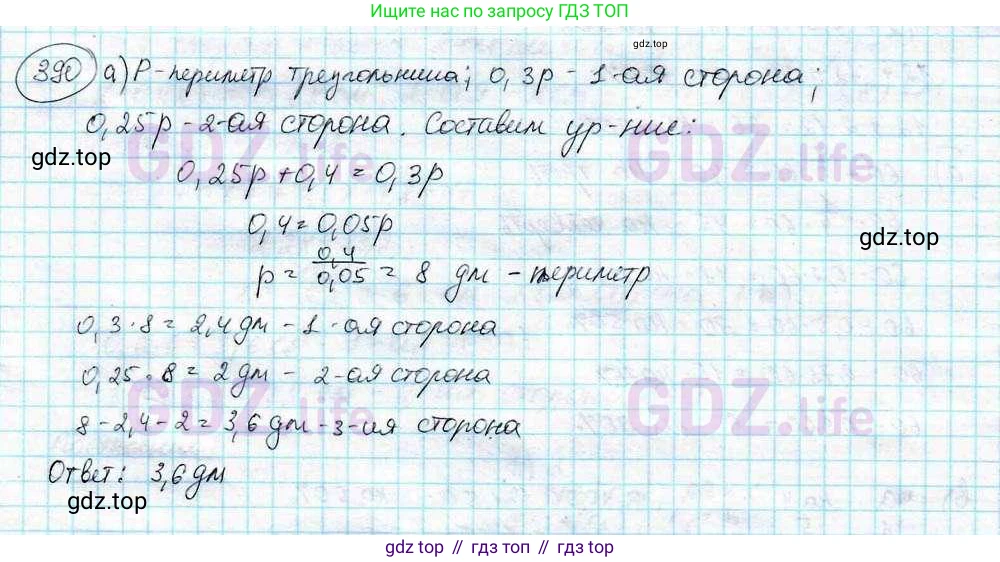 Ищите ответы по запросу ГДЗ ТОП
gdz.top
390 а) P - периметр треугольника; 0,3p - 1-ая сторона;
0,25p - 2-ая сторона. Составим ур-ние:
gdz.top
GDZ.life GDZ.life
0,25p + 0,4 = 0,3p
0,4 = 0,05p
gdz.top
p = 0,4/0,05 = 8 дм - периметр
0,3 · 8 = 2,4 дм - 1-ая сторона
0,25 · 8 = 2 дм - 2-ая сторона
GDZ.life GDZ.life
8 - 2,4 - 2 = 3,6 дм - 3-ия сторона
Ответ: 3,6 дм
gdz.top
gdz top // гдз топ // gdz top